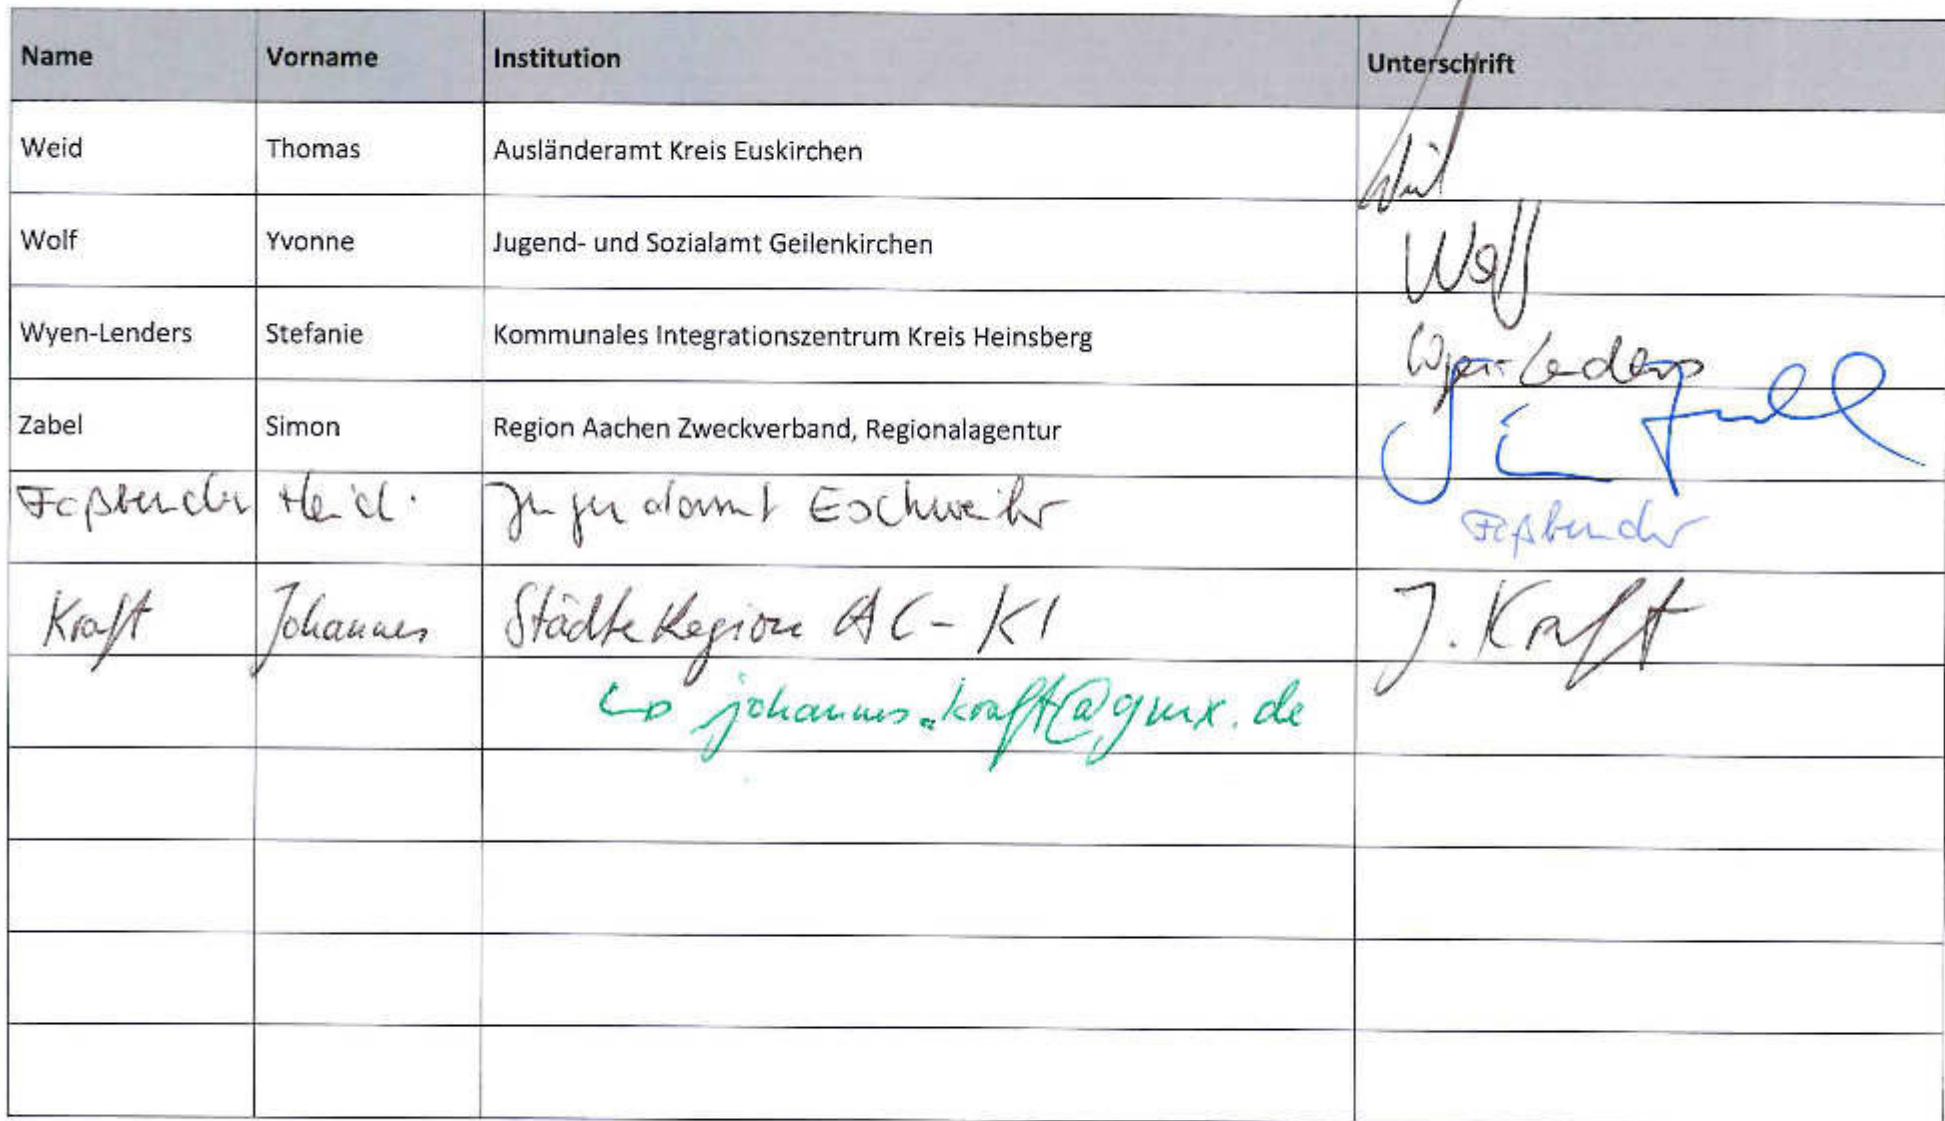 Name Vorname Institution Unterschrift
Weid Thomas Ausländeramt Kreis Euskirchen
Wolf Yvonne Jugend- und Sozialamt Geilenkirchen Wolf
Wyen-Lenders Stefanie Kommunales Integrationszentrum Kreis Heinsberg Wyen-Lenders
Zabel Simon Region Aachen Zweckverband, Regionalagentur
Faßbender Heidi Jugendamt Eschweiler Faßbender
Kraft Johannes StädteRegion AC-KI J. Kraft
johannes.kraft@gmx.de